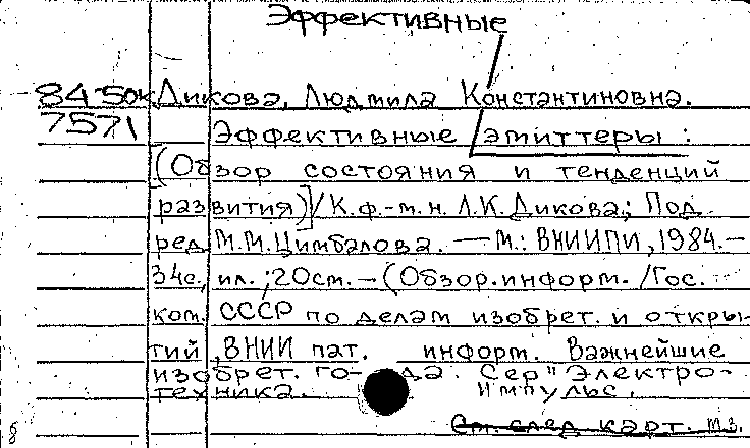 Эффективные
84-50к Дикова, Людмила Константиновна.
7571 Эффективные эмиттеры :
[(Обзор состояния и тенденций
развития)]/К.ф.-м.н. Л.К. Дикова; Под
ред. М.М. Цимбалова. — М.: ВНИИПИ, 1984. —
34с., ил.; 20см. — (Обзор. информ. /Гос.
ком. СССР по делам изобрет. и откры-
тий, ВНИИ пат. информ. Важнейшие
изобрет. го- да. Сер "Электро-
техника. Импульс.
См. след карт. м.з.